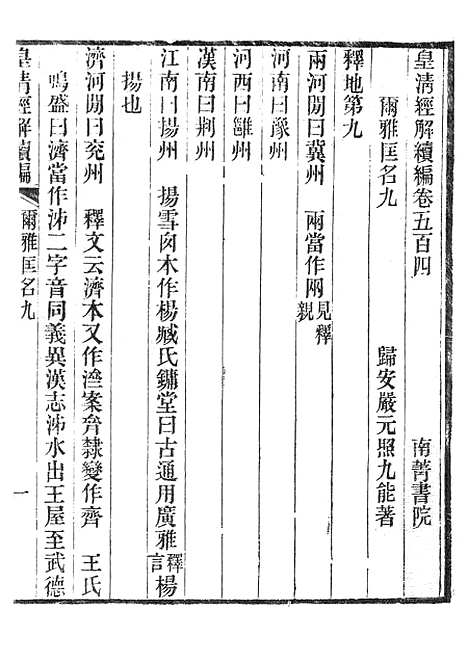 皇清經解續編卷五百四 南菁書院
爾雅匡名九 歸安嚴元照九能著
釋地第九
兩河閒曰冀州 兩當作㒳見釋親
河南曰豫州
河西曰雝州
漢南曰荆州
江南曰揚州 揚雪囱本作楊臧氏鏞堂曰古通用廣雅釋言楊
揚也
濟河閒曰兖州 釋文云濟本又作㴉案𠫼隸變作齊 王氏
鳴盛曰濟當作泲二字音同義異漢志泲水出王屋至武德
皇清經解續編 爾雅匡名九 一